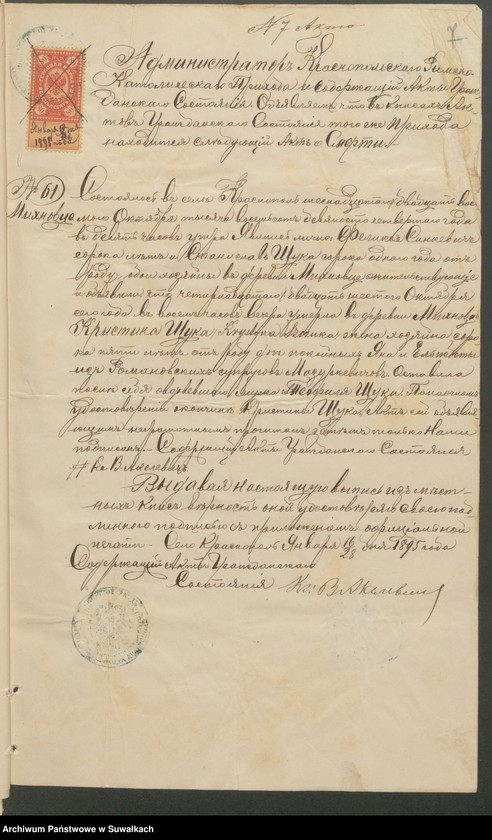 № 7 Акто
7
Администраторъ Краснопольскаго Римско-
Католическаго Прихода и содержащій Акты Граж-
данскаго Состоянія Объявляемъ что въ книгахъ Ак-
товъ Гражданскаго Состоянія того же Прихода
находится слѣдующій Актъ о Смерти.
Января
1895 года
№ 61
Михновце
Состоялось въ селѣ Краснополь шестнадцатаго/двадцать вось-
мого Октября тысяча восемьсотъ девяносто четвертаго года
въ девять часовъ утра. Явились лично, Феликсъ Синкевичъ
сорока лѣтъ и Станиславъ Щука сорока одного года отъ
роду, обои хозяйны въ деревнѣ Михновце жительствующіе
и объявили что четырнадцатаго/двадцать шестого Октября
сего года въ восемь часовъ вечера умерла въ деревнѣ Михновце
Кристина Щука /Krystyna Szczuka/ жена хозяйна соро-
ка пяти лѣтъ отъ роду дочь покойныхъ Яна и Елжбеты
изъ Романовскихъ супруговъ Мацкевичовъ. Оставила
послѣ себя овдовѣвшаго мужа Теофиля Щуки. По настоящемъ
удостовѣреніи о кончинѣ Кристины Щука, Актъ сей объявля-
ющимъ неграмотнымъ прочитанъ, затѣмъ только Нами
подписанъ. Содержащій Акты Гражданскаго Состоянія
Кс. В.
Выдавая настоящую выпись изъ мѣст-
ныхъ книгъ вѣрность оной удостовѣряю своею под-
линною подписью съ приложеніемъ оффиціальной
печати. Село Краснополь Января 16/28 дня 1895 года
Содержащій Акты Гражданскаго
Состоянія Кс. В.
Archiwum Państwowe w Suwałkach